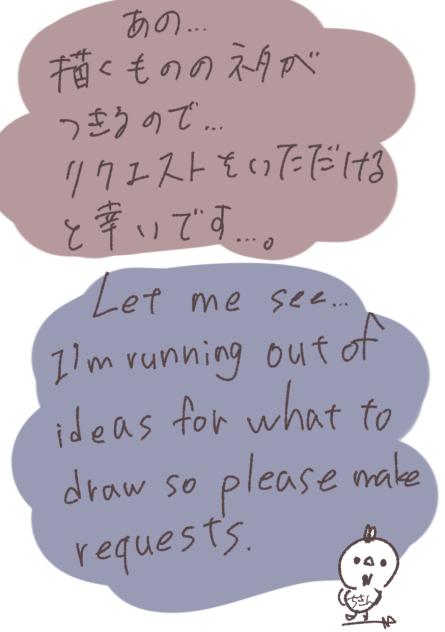 あの...
描くもののネタが
つきるので...
リクエストをいただける
と幸いです...。
Let me see...
I'm running out of
ideas for what to
draw so please make
requests.